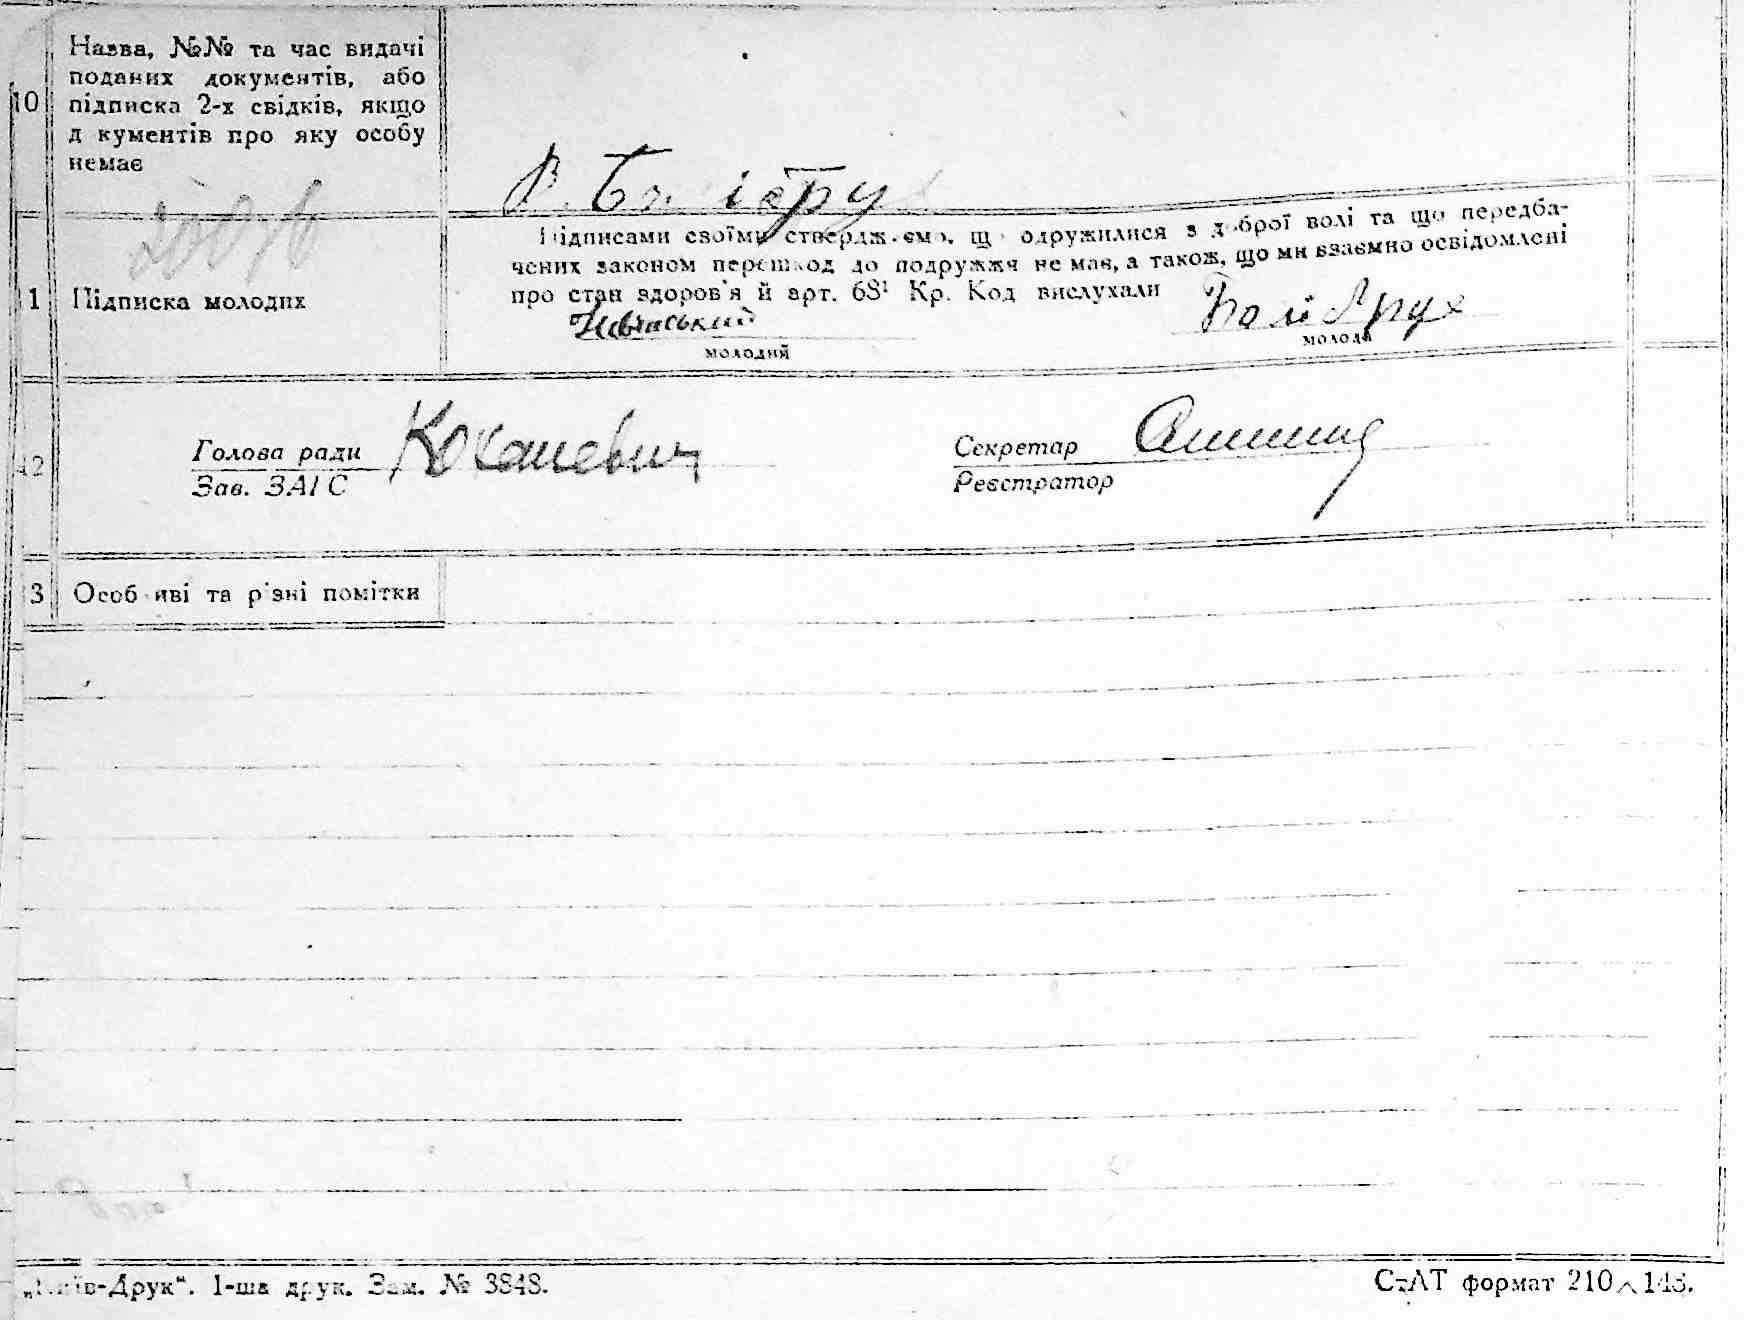 10 Назва, №№ та час видачі
поданих документів, або
підписка 2-х свідків, якщо
д кументів про яку особу
немає
1 Підписка молодих
Підписами своїми стверджуємо, що одружилися з доброї волі та що передба-
чених законом перешкод до подружжя не має, а також, що ми взаємно освідомлені
про стан здоров'я й арт. 68¹ Кр. Код вислухали
молодий
молода
12 Голова ради
Зав. ЗАГС
Секретар
Реєстратор
3 Особ иві та різні помітки
„Київ-Друк“. 1-ша друк. Зам. № 3848.
СтАТ формат 210 148.